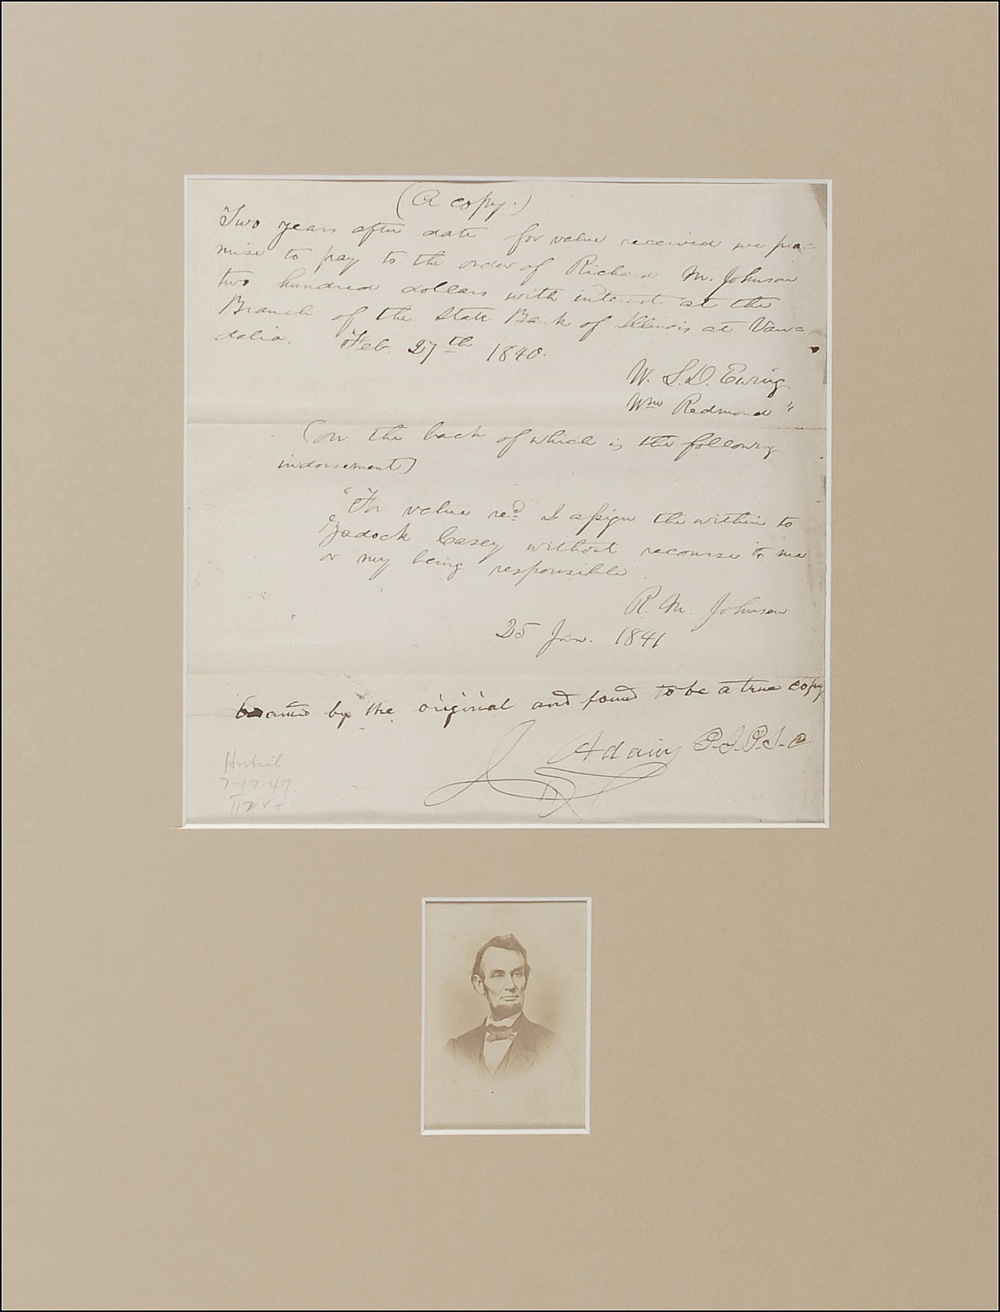 (A copy.)
Two years after date for value received we pro=
mise to pay to the order of Richard M. Johnson
two hundred dollars with interest at the
Branch of the State Bank of Illinois at Van=
dalia. Feb. 27th 1840.
W. L. D. Ewing
Wm Redmond "
(on the back of which is the following
indorsement)
"For value recd I assign the within to
Zadock Casey without recourse to me
or my being responsible
R. M. Johnson
25 Jan. 1841
by the original and found to be a true copy
J Adams
7-17-47